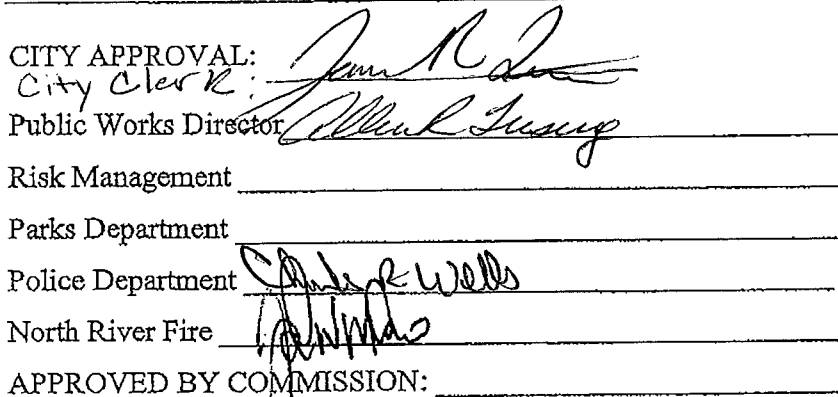 CITY APPROVAL:
City Clerk:
Public Works Director Allen R Tusing
Risk Management
Parks Department
Police Department R Wells
North River Fire
APPROVED BY COMMISSION: